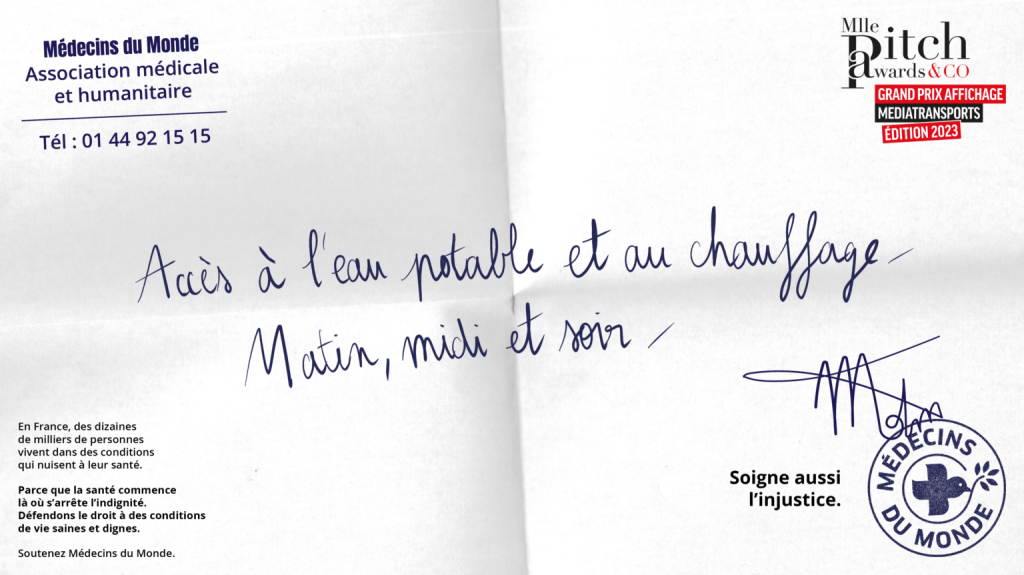 Médecins du Monde
Association médicale
et humanitaire
Tél : 01 44 92 15 15
Mlle
Pitch
awards &CO
GRAND PRIX AFFICHAGE
MEDIATRANSPORTS
ÉDITION 2023
Accès à l'eau potable et au chauffage.
Matin, midi et soir
En France, des dizaines
de milliers de personnes
vivent dans des conditions
qui nuisent à leur santé.
Parce que la santé commence
là où s'arrête l'indignité.
Défendons le droit à des conditions
de vie saines et dignes.
Soutenez Médecins du Monde.
Soigne aussi
l'injustice.
MÉDECINS
DU MONDE